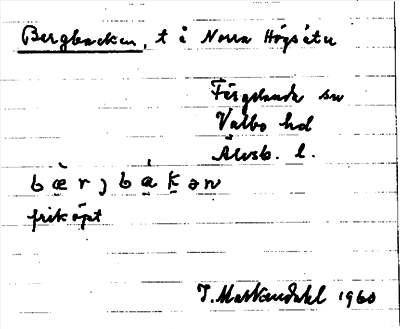 Bergbacken, t å Norra Högsäter
Färgelanda sn
Valbo hd
Älvsb. l.
bæ̀rjbákən
friköpt
1960